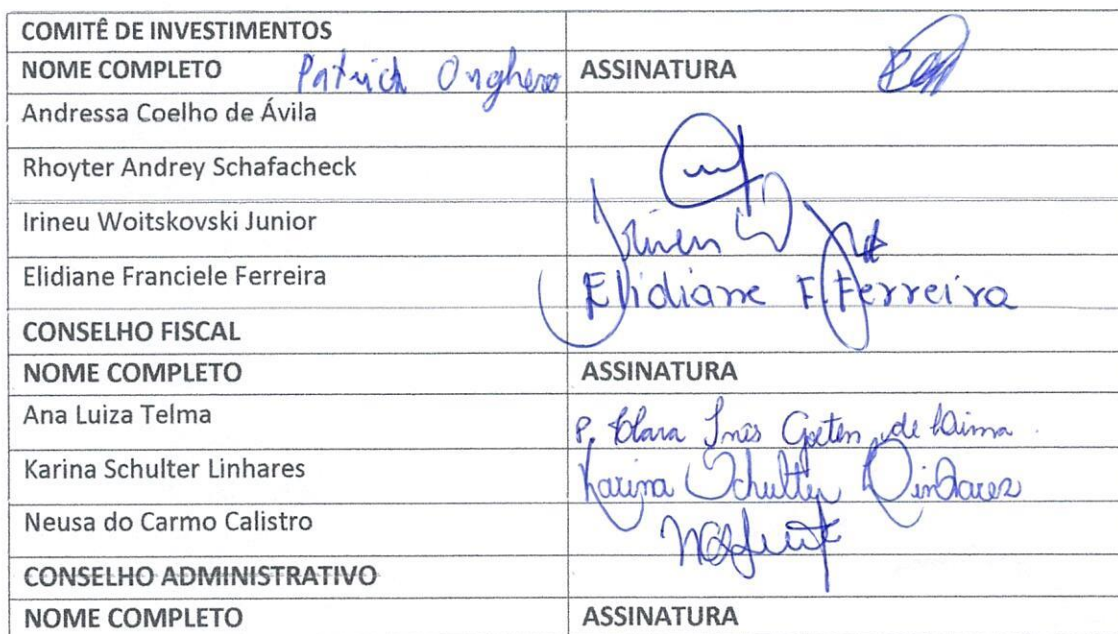 COMITÊ DE INVESTIMENTOS
NOME COMPLETO Patrick Onghero ASSINATURA
Andressa Coelho de Ávila
Rhoyter Andrey Schafacheck
Irineu Woitskovski Junior Irineu
Elidiane Franciele Ferreira Elidiane F. Ferreira
CONSELHO FISCAL
NOME COMPLETO ASSINATURA
Ana Luiza Telma P. Clara Inês de Lima
Karina Schulter Linhares Karina Schulter Linhares
Neusa do Carmo Calistro
CONSELHO ADMINISTRATIVO
NOME COMPLETO ASSINATURA